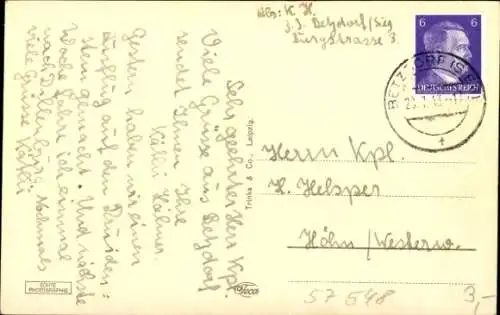 Abs: K. H.
z. Z. Betzdorf/Sieg
Burgstrasse 3.
6 6
DEUTSCHES REICH
BETZDORF (SIEG)
Sehr geehrter Herr Kpl.
Viele Grüsse aus Betzdorf
sendet Ihnen Ihre
Käthi Hafner.
Gestern haben wir einen
Ausflug auf den Druiden=
stein gemacht. Und nächste
Woche fahre ich einmal
nach Dillenburg. Nochmals
viele Grüsse Käthi
Trinks & Co., Leipzig.
Herrn Kpl.
H. Helsper
Höhn/Westerw.
ECHTE
PHOTOGRAPHIE
57548
3,-